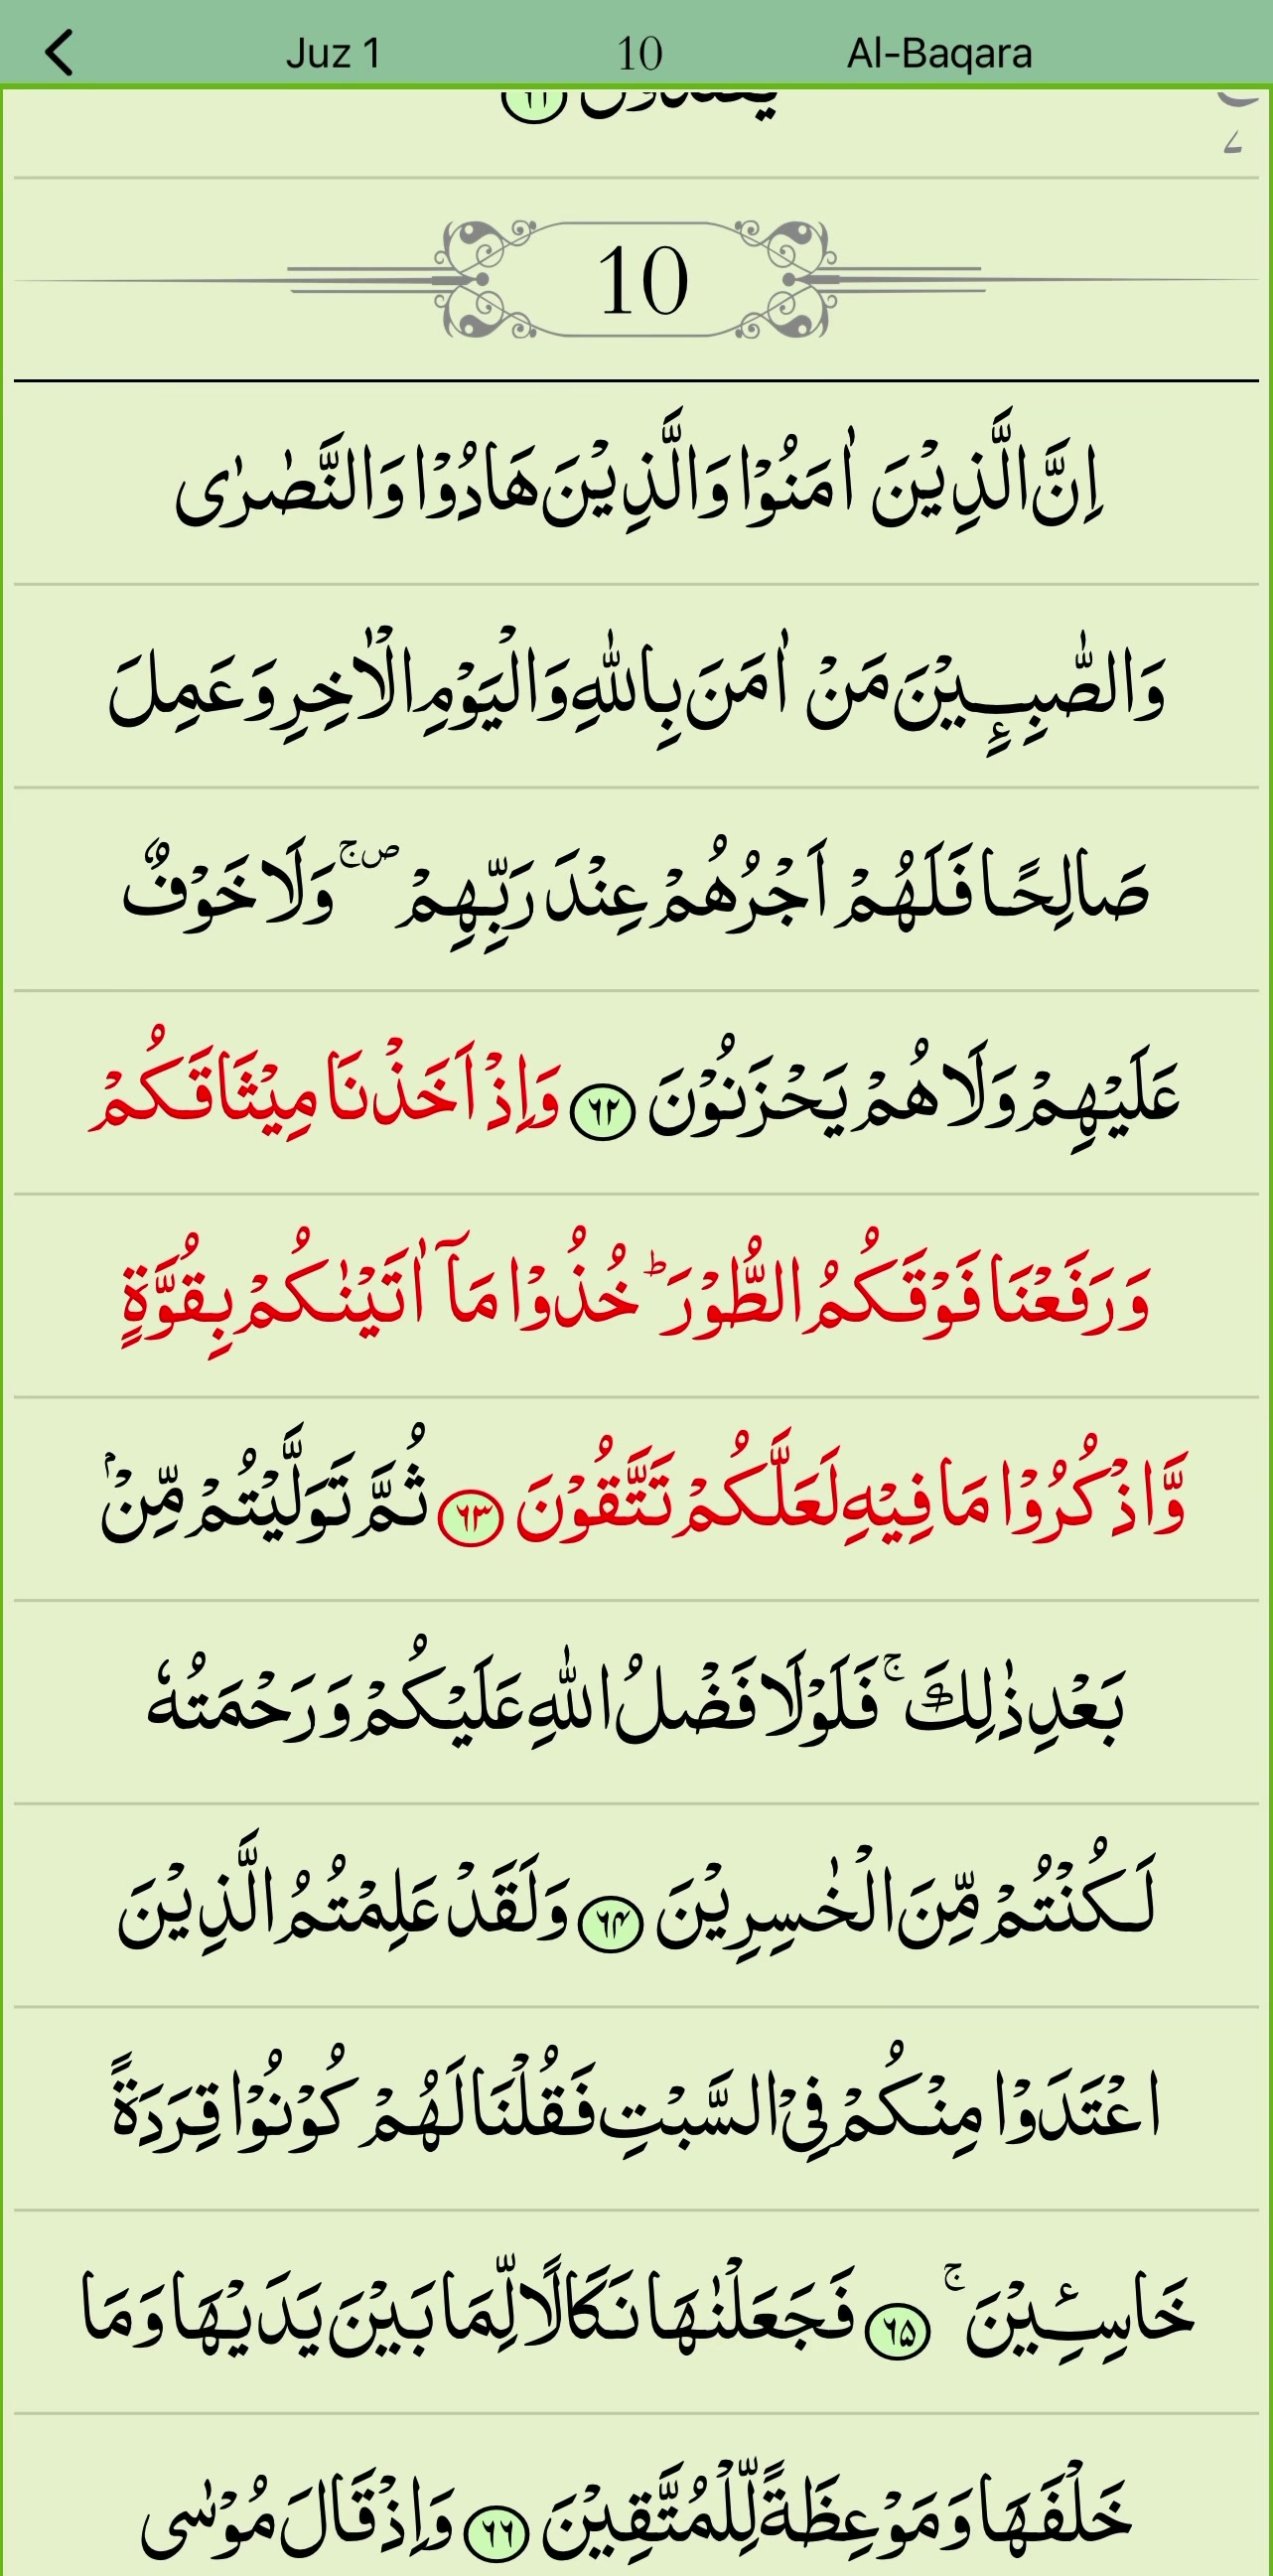 Juz 1 10 Al-Baqara
10
اِنَّ الَّذِيْنَ اٰمَنُوْا وَالَّذِيْنَ هَادُوْا وَالنَّصٰرٰى
وَالصّٰبِـِٕيْنَ مَنْ اٰمَنَ بِاللّٰهِ وَالْيَوْمِ الْاٰخِرِ وَعَمِلَ
صَالِحًا فَلَهُمْ اَجْرُهُمْ عِنْدَ رَبِّهِمْ ۖۚ وَلَا خَوْفٌ
عَلَيْهِمْ وَلَا هُمْ يَحْزَنُوْنَ ۶۲ وَاِذْ اَخَذْنَا مِيْثَاقَكُمْ
وَرَفَعْنَا فَوْقَكُمُ الطُّوْرَ ؕ خُذُوْا مَآ اٰتَيْنٰكُمْ بِقُوَّةٍ
وَّاذْكُرُوْا مَا فِيْهِ لَعَلَّكُمْ تَتَّقُوْنَ ۶۳ ثُمَّ تَوَلَّيْتُمْ مِّنْۢ
بَعْدِ ذٰلِكَ ۚ فَلَوْلَا فَضْلُ اللّٰهِ عَلَيْكُمْ وَرَحْمَتُهٗ
لَكُنْتُمْ مِّنَ الْخٰسِرِيْنَ ۶۴ وَلَقَدْ عَلِمْتُمُ الَّذِيْنَ
اعْتَدَوْا مِنْكُمْ فِى السَّبْتِ فَقُلْنَا لَهُمْ كُوْنُوْا قِرَدَةً
خَاسِـِٕيْنَ ۚ ۶۵ فَجَعَلْنٰهَا نَكَالًا لِّمَا بَيْنَ يَدَيْهَا وَمَا
خَلْفَهَا وَمَوْعِظَةً لِّلْمُتَّقِيْنَ ۶۶ وَاِذْ قَالَ مُوْسٰى